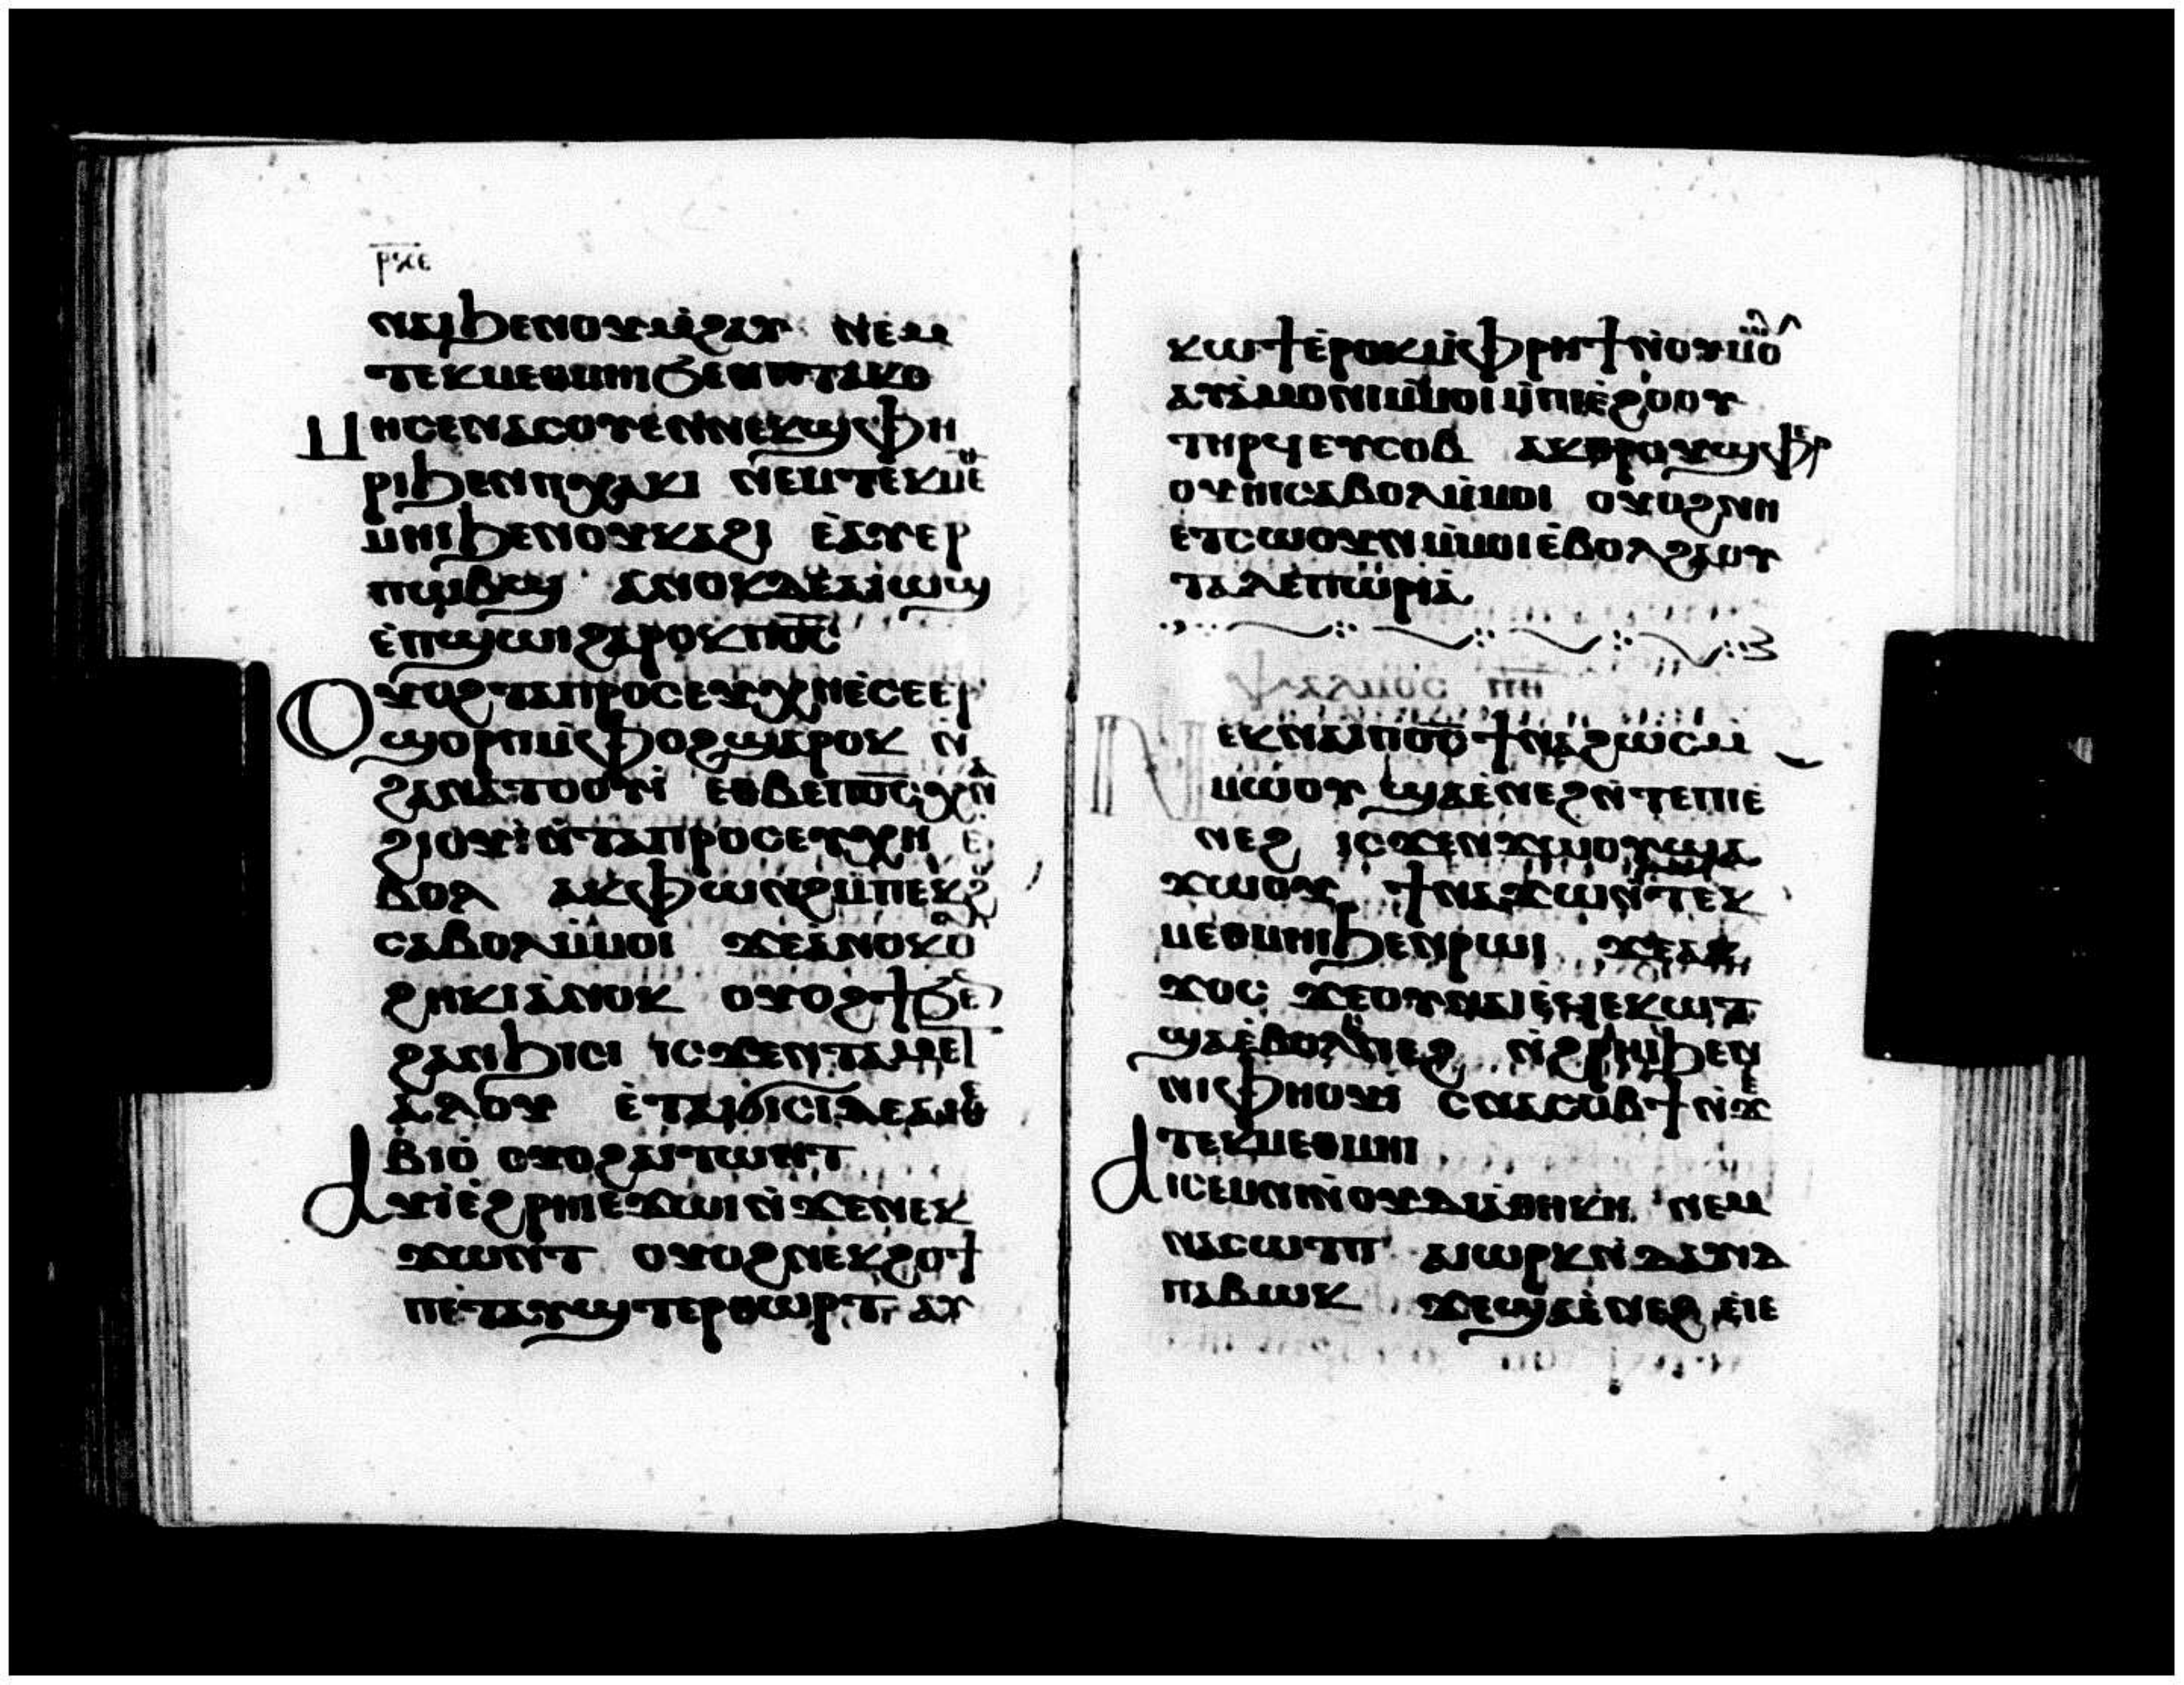 ⲣⲝⲉ
ⲛⲁⲓϧⲉⲛⲟⲩⲙ̀ϩⲁⲩ ⲛⲉⲙ
ⲧⲉⲕⲙⲉⲑⲙⲏⲓϭⲉⲛⲡⲧⲁⲕⲟ
ⲙⲏⲥⲉⲛⲁⲥⲟⲩⲉⲛⲛⲉⲕϣⲫⲏ
ⲣⲓϧⲉⲛⲡⲭⲁⲕⲓ ⲛⲉⲙⲧⲉⲕⲙⲉ
ⲙⲏⲓϧⲉⲛⲟⲩⲕⲁϩⲓ ⲉ̀ⲁⲩⲉⲣ
ⲡⲱⲃϣ ⲁⲛⲟⲕⲇⲉⲁⲓⲱϣ
ⲉ̀ⲡϣⲱⲓϩⲁⲣⲟⲕⲡⲟ̅ⲥ̅
ⲟⲩⲟϩⲧⲁⲡⲣⲟⲥⲉⲩⲭⲏⲉ̀ⲥⲉⲉⲣ
ϣⲟⲣⲡⲙ̀ⲫⲟϩϣⲁⲣⲟⲕ ⲛ̀
ϩⲁⲛⲁⲧⲟⲟⲩⲓ̀ ⲉⲑⲃⲉⲡⲟ̅ⲥ̅ⲭⲛ
ϩⲓⲟⲩⲓ̀ⲛ̀ⲧⲁⲡⲣⲟⲥⲉⲩⲭⲏ ⲉ
ⲃⲟⲗ ⲁⲕⲫⲱⲛϩⲙ̀ⲡⲉⲕϩ
ⲥⲁⲃⲟⲗⲙ̀ⲙⲟⲓ ϫⲉⲁⲛⲟⲕⲟ
ϩⲏⲕⲓⲁⲛⲟⲕ ⲟⲩⲟϩϯϭⲉ
ϩⲁⲛϧⲓⲥⲓ ⲓⲥϫⲉⲛⲧⲁⲙⲉⲧ
ⲁⲗⲟⲩ ⲉ̀ⲧⲁⲓϭⲓⲥⲓⲇⲉⲁⲓⲑⲉ
ⲃⲓⲟ̀ ⲟⲩⲟϩⲁⲓⲧⲱⲛⲧ
ⲁⲩⲓ̀ⲉ̀ϩⲣⲏⲓⲉϫⲱⲓⲛ̀ϫⲉⲛⲉⲕ
ϫⲱⲛⲧ ⲟⲩⲟϩⲛⲉⲕϩⲟϯ
ⲡⲉⲧⲁⲩϣⲧⲉⲣⲑⲱⲣⲧ ⲁⲩ
ⲕⲱϯⲉ̀ⲣⲟⲕⲙ̀ⲫⲣⲏϯⲛ̀ⲟⲩⲙⲟ
ⲁⲩⲁ̀ⲙⲟⲛⲓⲙ̀ⲙⲟⲓⲙ̀ⲡⲓⲉ̀ϩⲟⲟⲩ
ⲧⲏⲣϥⲉⲩⲥⲟⲃ ⲁⲕⲑⲣⲟⲩϣⲫⲉⲣ
ⲟⲩⲏⲓⲥⲁⲃⲟⲗⲙ̀ⲙⲟⲓ ⲟⲩⲟϩⲛⲏ
ⲉⲧⲥⲱⲟⲩⲛⲙ̀ⲙⲟⲓⲉ̀ⲃⲟⲗϩⲁⲟⲩ
ⲧⲁⲗⲉⲡⲱⲣⲓⲁ
ⲡⲏ
ⲛⲉⲕⲛⲁⲓⲡⲟ̅ⲥ̅ϯⲛⲁϩⲱⲥⲙ̀
ⲙⲱⲟⲩ ϣⲁⲉ̀ⲛⲉϩⲛ̀ⲧⲉⲡⲓⲉ
ⲛⲉϩ ⲓⲥϫⲉⲛϫⲙⲟⲩϣⲁ
ϫⲱⲟⲩ ϯⲛⲁϫⲱⲛ̀ⲧⲉⲕ
ⲙⲉⲑⲙⲏⲓϧⲉⲛⲣⲱⲓ ϫⲉⲁⲕ
ϫⲟⲥ ϫⲉⲟⲩⲛⲁⲓⲉⲩⲉⲕⲱⲧ
ϣⲁⲉ̀ⲃⲟⲗⲛⲉϩ ⲛ̀ϩⲣⲏⲓϧⲉⲛ
ⲛⲓⲫⲏⲟⲩⲓ̀ ⲥⲛⲁⲥⲟⲃϯⲛ̀ϫⲉ
ⲧⲉⲕⲙⲉⲑⲙⲏⲓ
ⲁⲓⲥⲉⲙⲛⲓⲛ̀ⲟⲩⲇⲓⲁⲑⲏⲕⲏ ⲛⲉⲙ
ⲛⲁⲥⲱⲧⲡ ⲁⲓⲱⲣⲕⲛ̀ⲇⲁⲩⲓⲇ
ⲡⲁⲃⲱⲕ ϫⲉϣⲁⲉ̀ⲛⲉϩ ⲉⲓⲉ